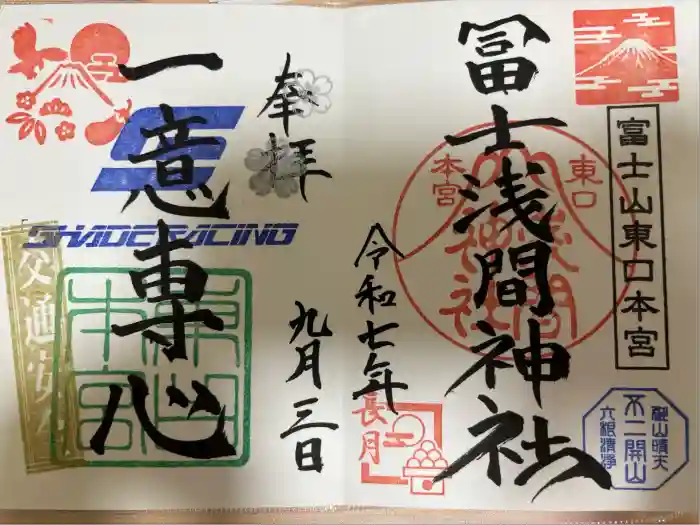 富士山東口本宮
冨士浅間神社
東口
本宮
浅間
神社
不二開山
六根清浄
令和七年
長月
九月三日
奉拝
一意専心
SHADERACING
東口
本宮
交通安全